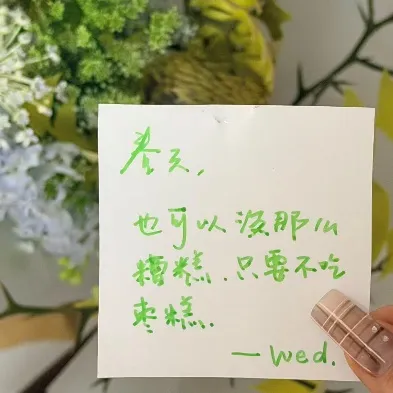 春天,
也可以没那么
糟糕.只要不吃
枣糕.
—wed.